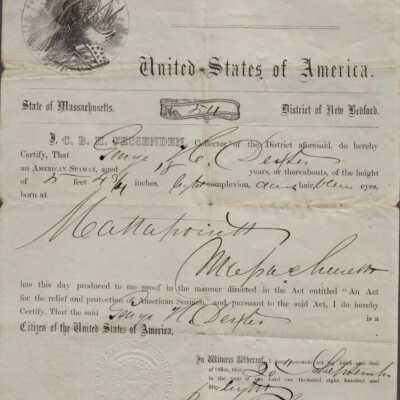 United States of America.
State of Massachusetts.
District of New Bedford.
I, C. B. H. FESSENDEN, Collector of the District aforesaid, do hereby
Certify, That H. Dexter
an AMERICAN SEAMAN, aged 18 years, or thereabouts, of the height
of 5 feet inches, light complexion, hair, blue eyes,
born at
Mattapoisett
Massachusetts
has this day produced to me proof in the manner directed in the Act entitled "An Act
for the relief and protection of American Seamen, and pursuant to the said Act, I do hereby
Certify, That the said H. Dexter is a
Citizen of the United States of America,
In Witness Whereof, I
of Office, this September
in the year of our Lord one thousand eight hundred and
fifty eight